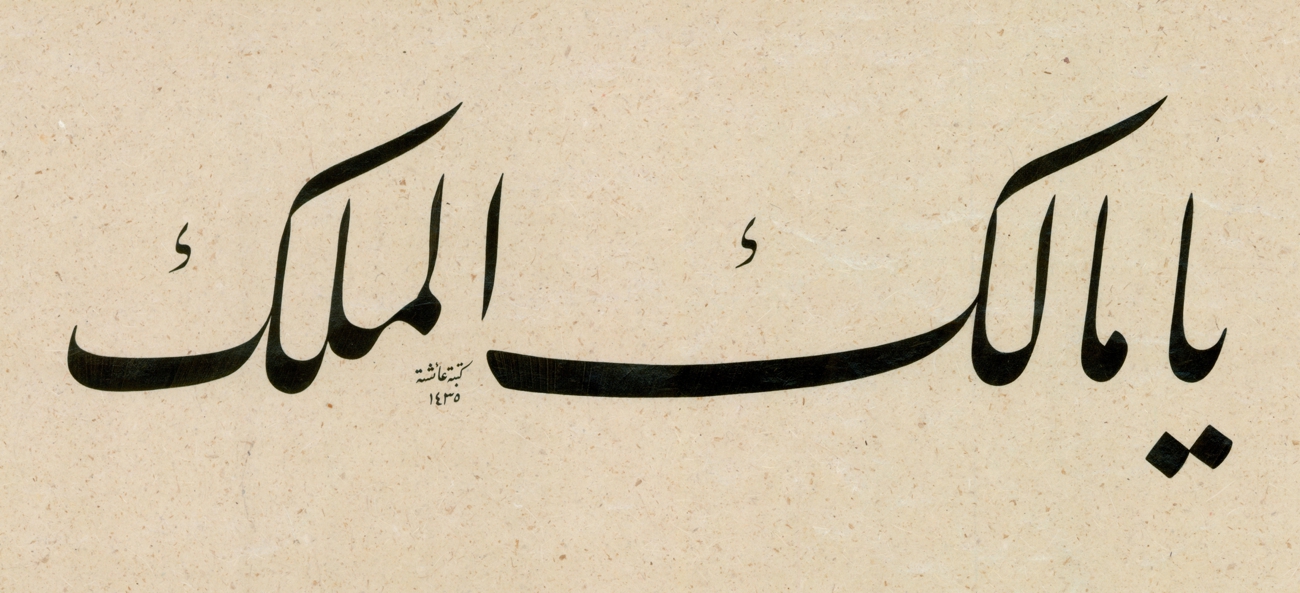 يا مالك الملك
كتبته عائشة
١٤٣٥